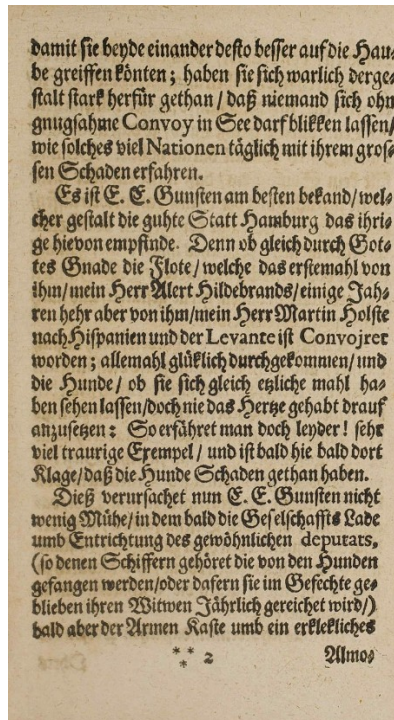 damit sie beyde einander desto besser auf die Hau⸗
be greiffen könten; haben sie sich warlich derge⸗
stalt stark herfür gethan / daß niemand sich ohn
gnugsahme Convoy in See darf blikken lassen/
wie solches viel Nationen täglich mit ihrem gros⸗
sen Schaden erfahren.
Es ist E. E. Gunsten am besten bekand/wel⸗
cher gestalt die guhte Statt Hamburg das ihri⸗
ge hievon empfinde. Denn ob gleich durch Got⸗
tes Gnade die Flote/welche das erstemahl von
ihm/mein Herr Alert Hildebrands/einige Jah⸗
ren hehr aber von ihm/mein Herr Martin Holste
nach Hispanien und der Levante ist Convojret
worden; allemahl glüklich durchgekommen/und
die Hunde/ ob sie sich gleich etzliche mahl ha⸗
ben sehen lassen/doch nie das Hertze gehabt drauf
anzusetzen: So erfähret man doch leyder! sehr
viel traurige Exempel / und ist bald hie bald dort
Klage/daß die Hunde Schaden gethan haben.
Dieß verursachet nun E. E. Gunsten nicht
wenig Mühe/in dem bald die Geselschaffts Lade
umb Entrichtung des gewöhnlichen deputats,
(so denen Schiffern gehöret die von den Hunden
gefangen werden/oder dafern sie im Gefechte ge⸗
blieben ihren Witwen Jährlich gereichet wird/)
bald aber der Armen Kaste umb ein erklekliches
*** 2 Almo⸗